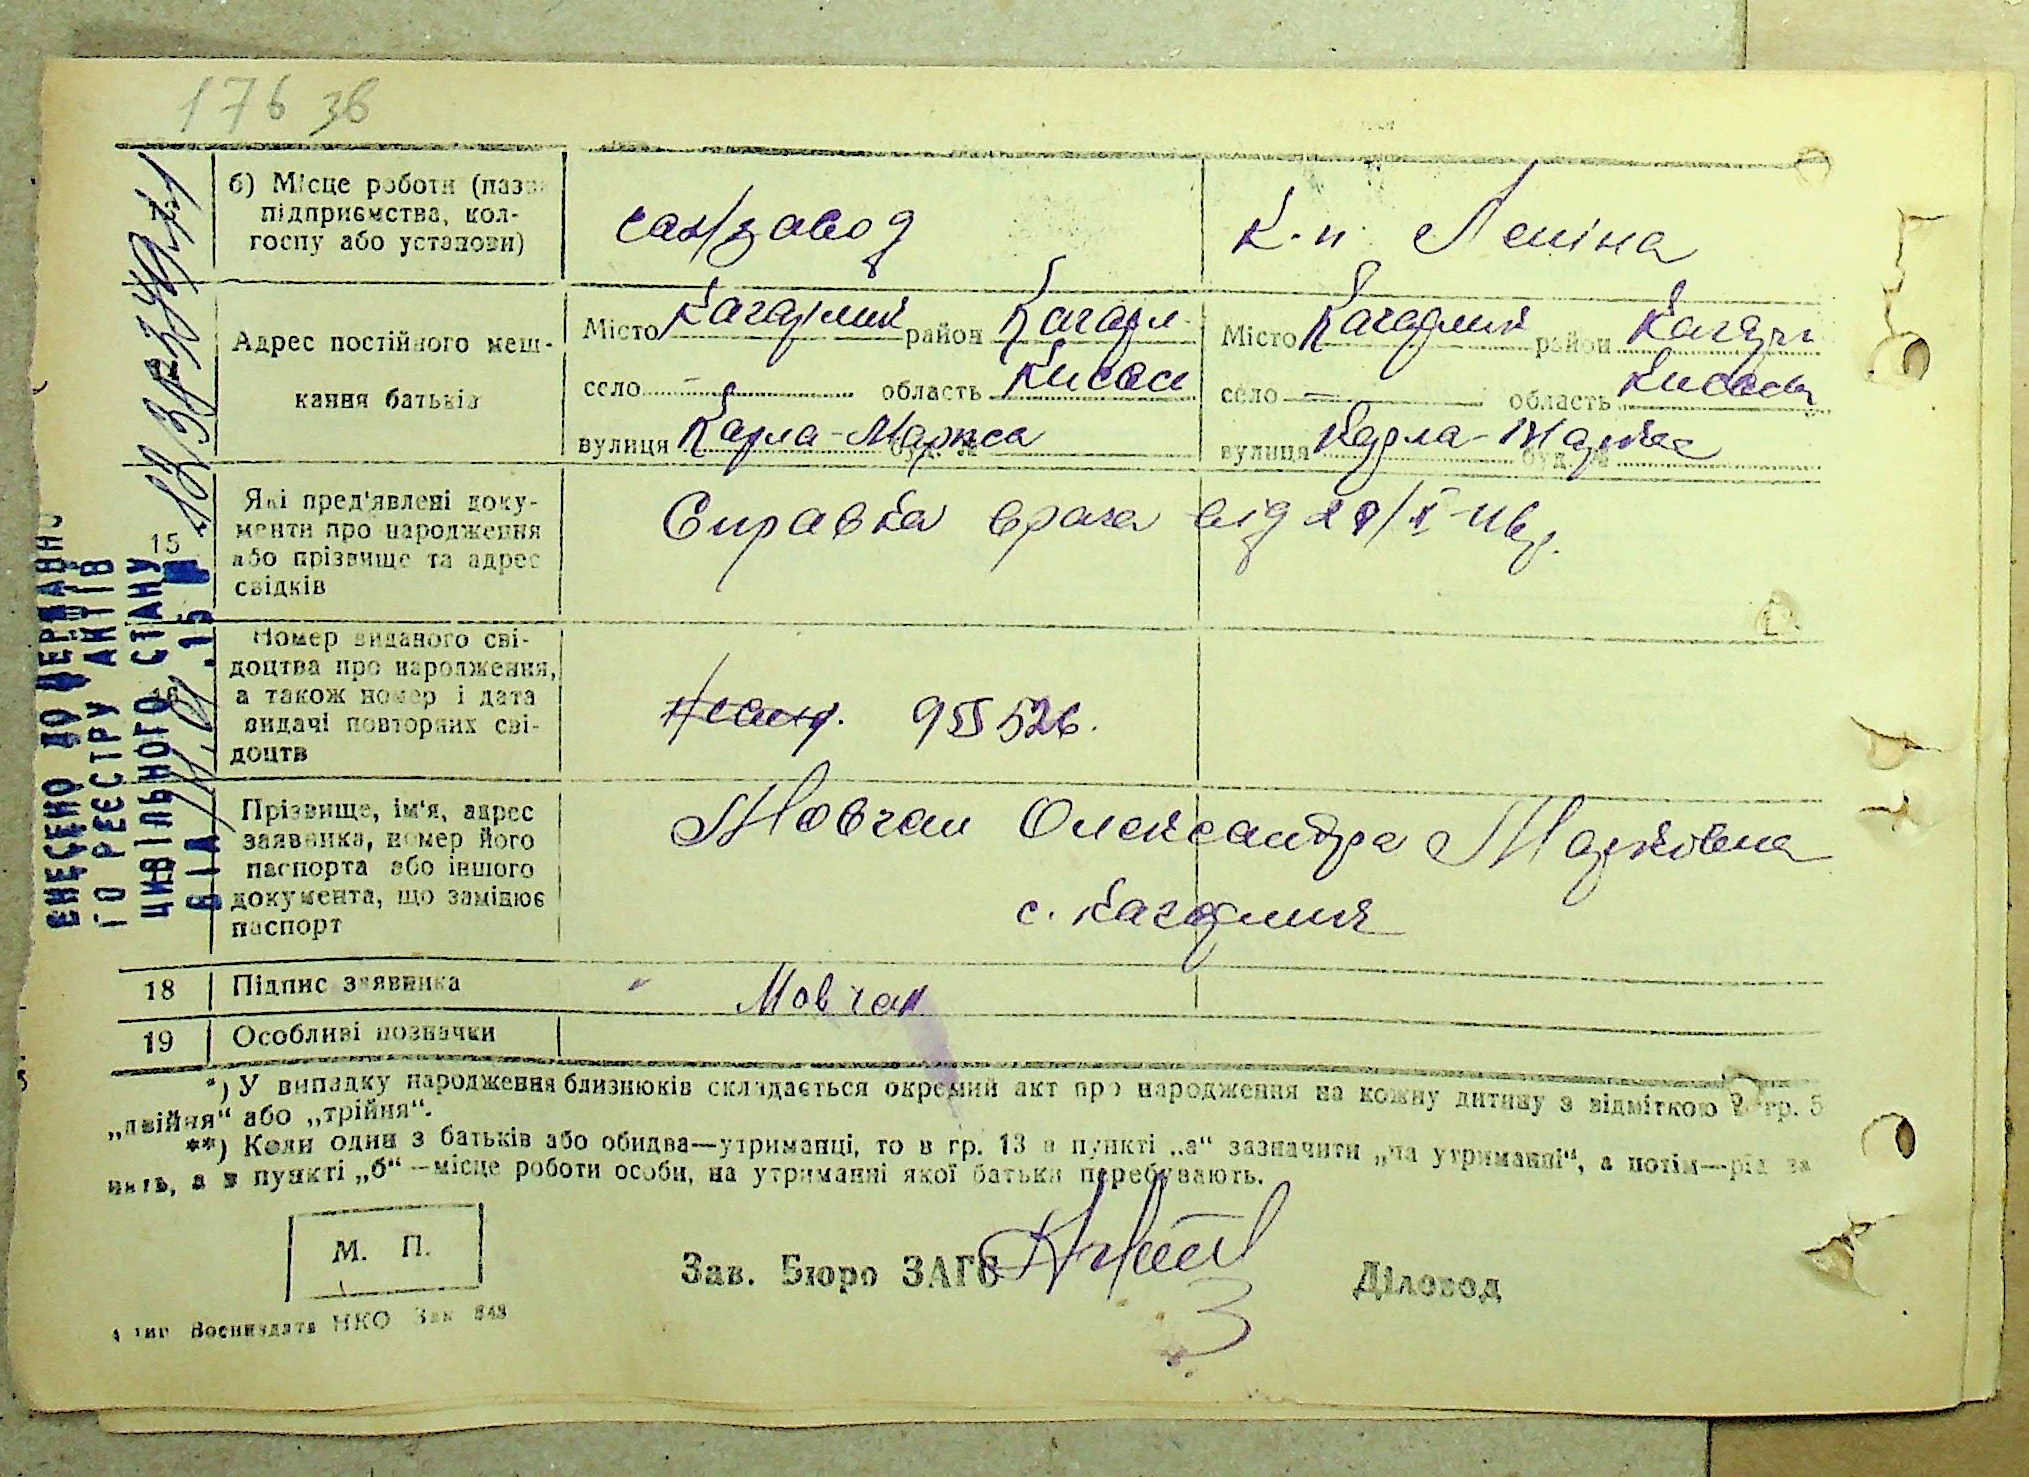 176 зв
б) Місце роботи (назва
підприємства, кол-
госпу або установи)
сах/завод
к-п Леніна
Адрес постійного меш-
кання батьків
Місто Кагарлик район Кагарл.
село – область Києвськ
вулиця Карла-Маркса буд. №
Місто Кагарлик район Кагарл
село – область Києвськ
вулиця Карла-Маркса буд. №
15
Які пред'явлені доку-
менти про народження
або прізвище та адрес
свідків
Справка врача від
16
Номер виданого сві-
доцтва про народження,
а також номер і дата
видачі повторних сві-
доцтв
526.
Прізвище, ім'я, адрес
заявника, номер його
паспорта або іншого
документа, що замінює
паспорт
Мовчан Олександра Марківна
с. Кагарлик
18 Підпис заявника
Мовчан
19 Особливі позначки
ВНЕСЕНО ДО ДЕРЖАВНО
ГО РЕЄСТРУ АКТІВ
ЦИВІЛЬНОГО СТАНУ
ВІД
*) У випадку народження близнюків складається окремий акт про народження на кожну дитину з відміткою в гр. 5
„двійня“ або „трійня“.
**) Коли один з батьків або обидва—утриманці, то в гр. 13 в пункті „а“ зазначити „на утриманні“, а потім—рід за
нять, а в пункті „б“—місце роботи особи, на утриманні якої батьки перебувають.
М. П.
Зав. Бюро ЗАГС
Діловод
3
тип Воениздата НКО Зак 848